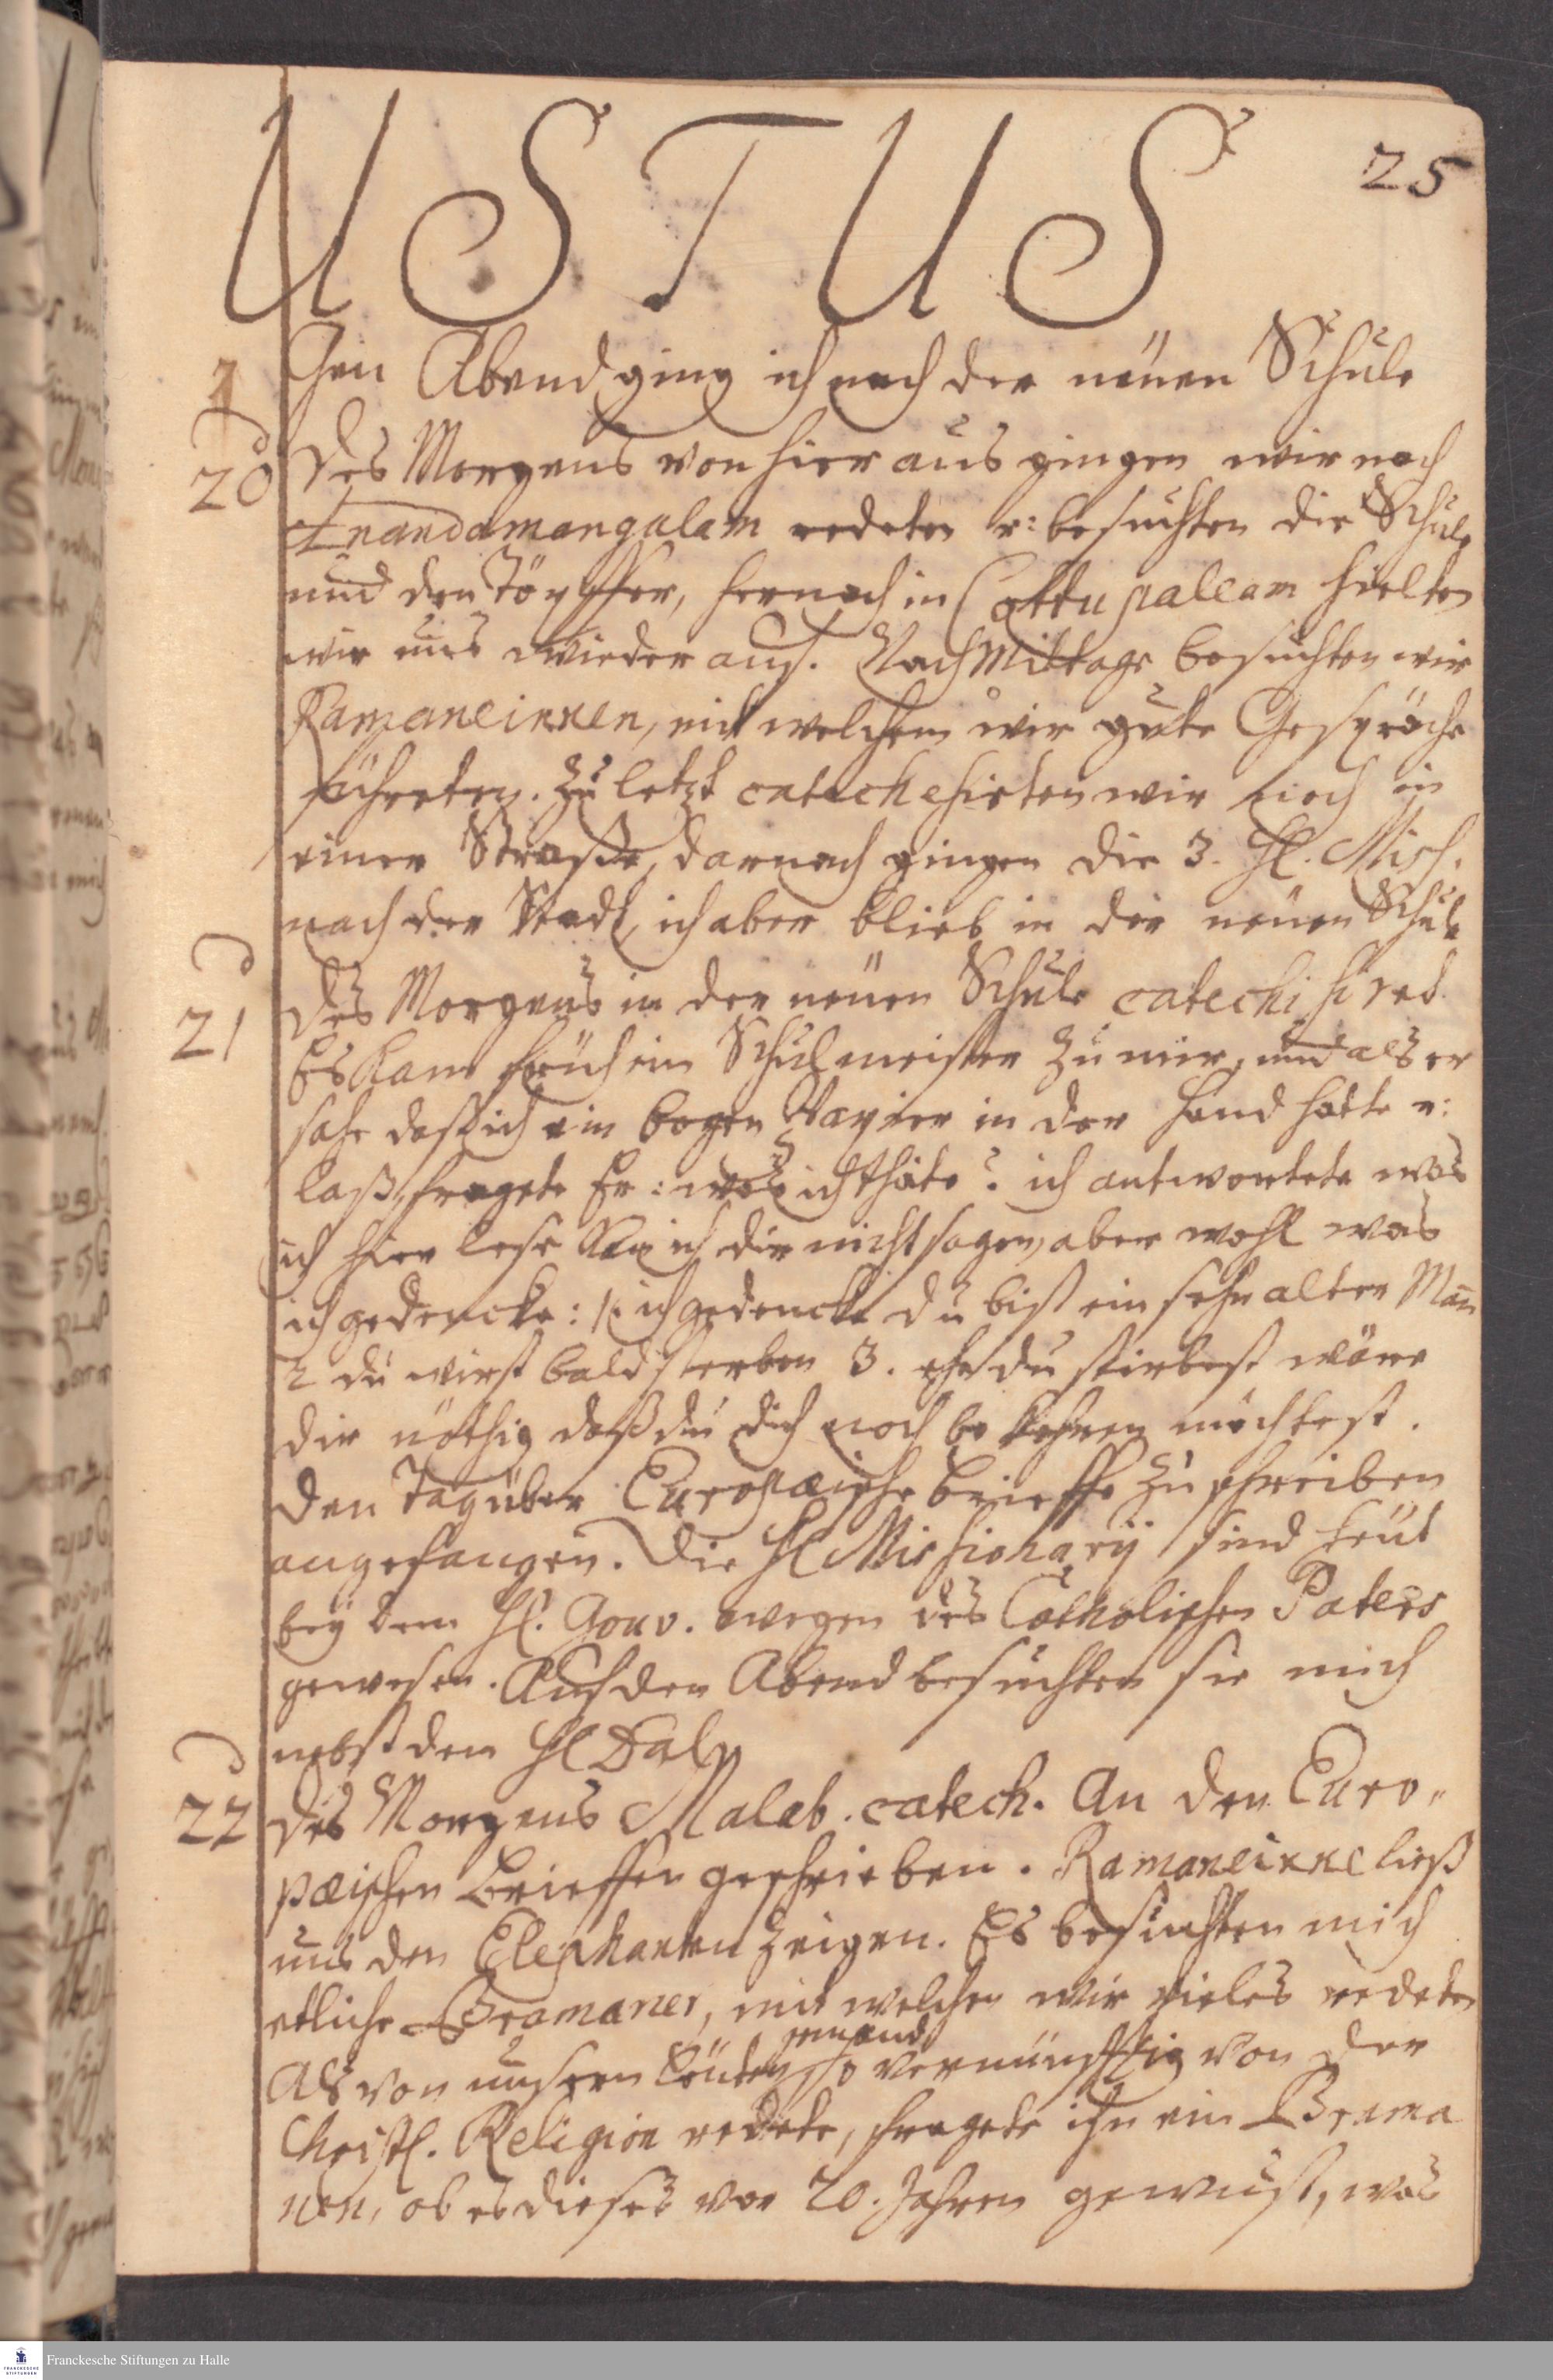 USTUS
25
Gen Abend ging ich nach der neüen Schule
20 Des Morgens von hier aus gingen wir nach
Anandamangalam redeten u: besuchten die Schule
und den Töpffer, hernach in Cottupaleam hielten
wir uns wieder auf. Nachmittage besuchten wir
Ramaneikken, mit welchem wir gute Gespräche
führeten. Zu letzt catechesirten wir noch in
einer Straße, darnach gingen die 3. H. Miss.
nach der Stadt, ich aber blieb in der neüen Schule
21 Des Morgens in der neüen Schule catechisiret.
Es kam früh ein Schulmeister zu mir, und als er
sahe daß ich ein bogen Papier in der Hand hatte u:
laß, fragete Er: was ich thäte? ich antwortete was
ich hier lese kan ich dir nicht sagen, aber wohl was
ich gedencke: 1. ich gedencke du bist ein sehr alter Mañ
2 du wirst bald sterben 3. ehe du stirbest wäre
dir nöthig daß du dich noch bekehren möchtest.
Den Tag über Europæische Brieffe zu schreiben
angefangen. Die H Missionarij sind heüt
bey dem H. Gouv. wegen des Catholischen Paters
gewesen. Auf den Abend besuchten sie mich
nebst dem H Dal
22 Des Morgens Malab. catech. An den Euro„
pæischen Brieffen geschrieben. Ramaneikke ließ
uns den Elephanten zeigen. Es besuchten mich
etliche Bramaner, mit welchen wir vieles redeten
jemand
Als von unsern Leüten so vernünfftig von der
Christl. Religion redete, fragete ihn ein Brama
ner, ob er dieses vor 20. Jahren gewust, was
Franckesche Stiftungen zu Halle
FRANCKESCHE STIFTUNGEN